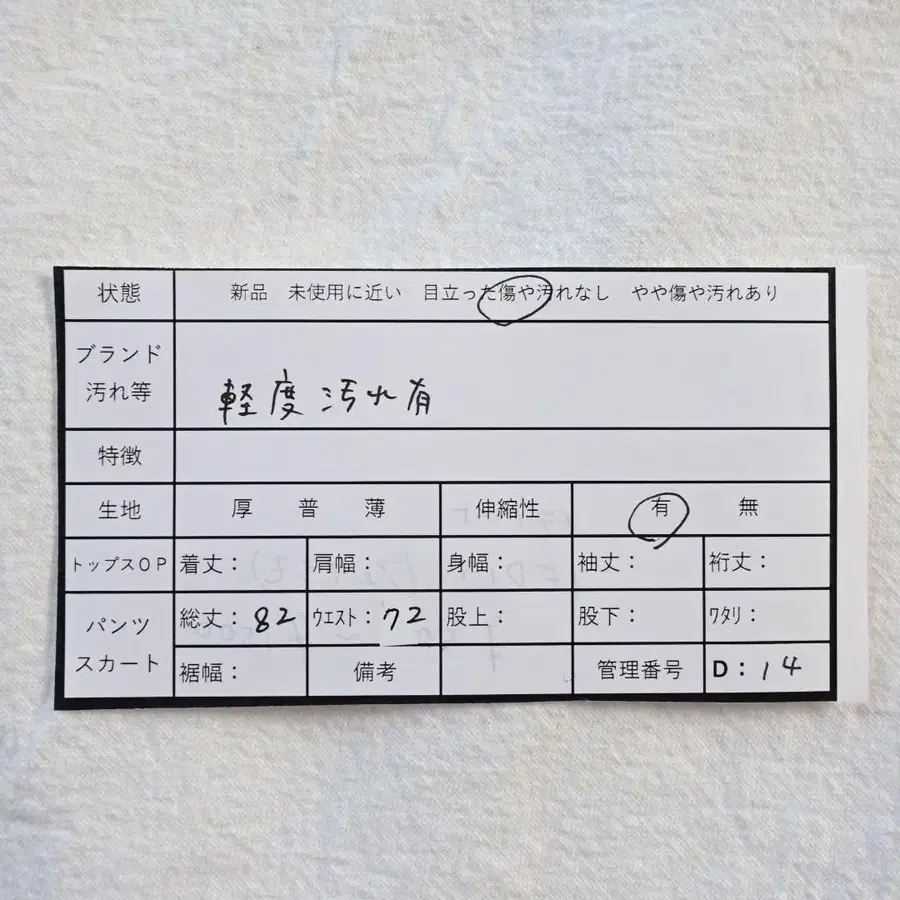 状態 新品 未使用に近い 目立った傷や汚れなし やや傷や汚れあり
ブランド
汚れ等 軽度汚れ有
特徴
生地 厚 普 薄 伸縮性 有 無
トップスOP 着丈： 肩幅： 身幅： 袖丈： 裄丈：
パンツ
スカート
総丈：82 ウエスト：72 股上： 股下： ワタリ：
裾幅： 備考 管理番号 D：14